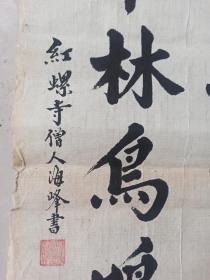 林鳥
紅螺寺僧人海峰書